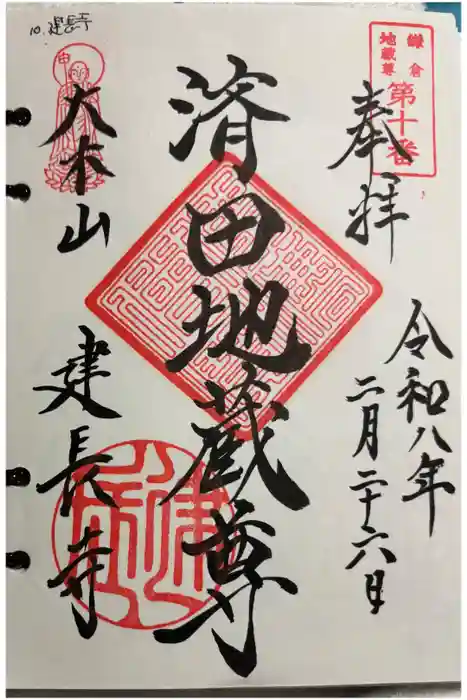 10. 建長寺
鎌倉
地蔵尊
第十番
奉拝
令和八年
二月二十六日
済田地蔵尊
大本山
建長寺